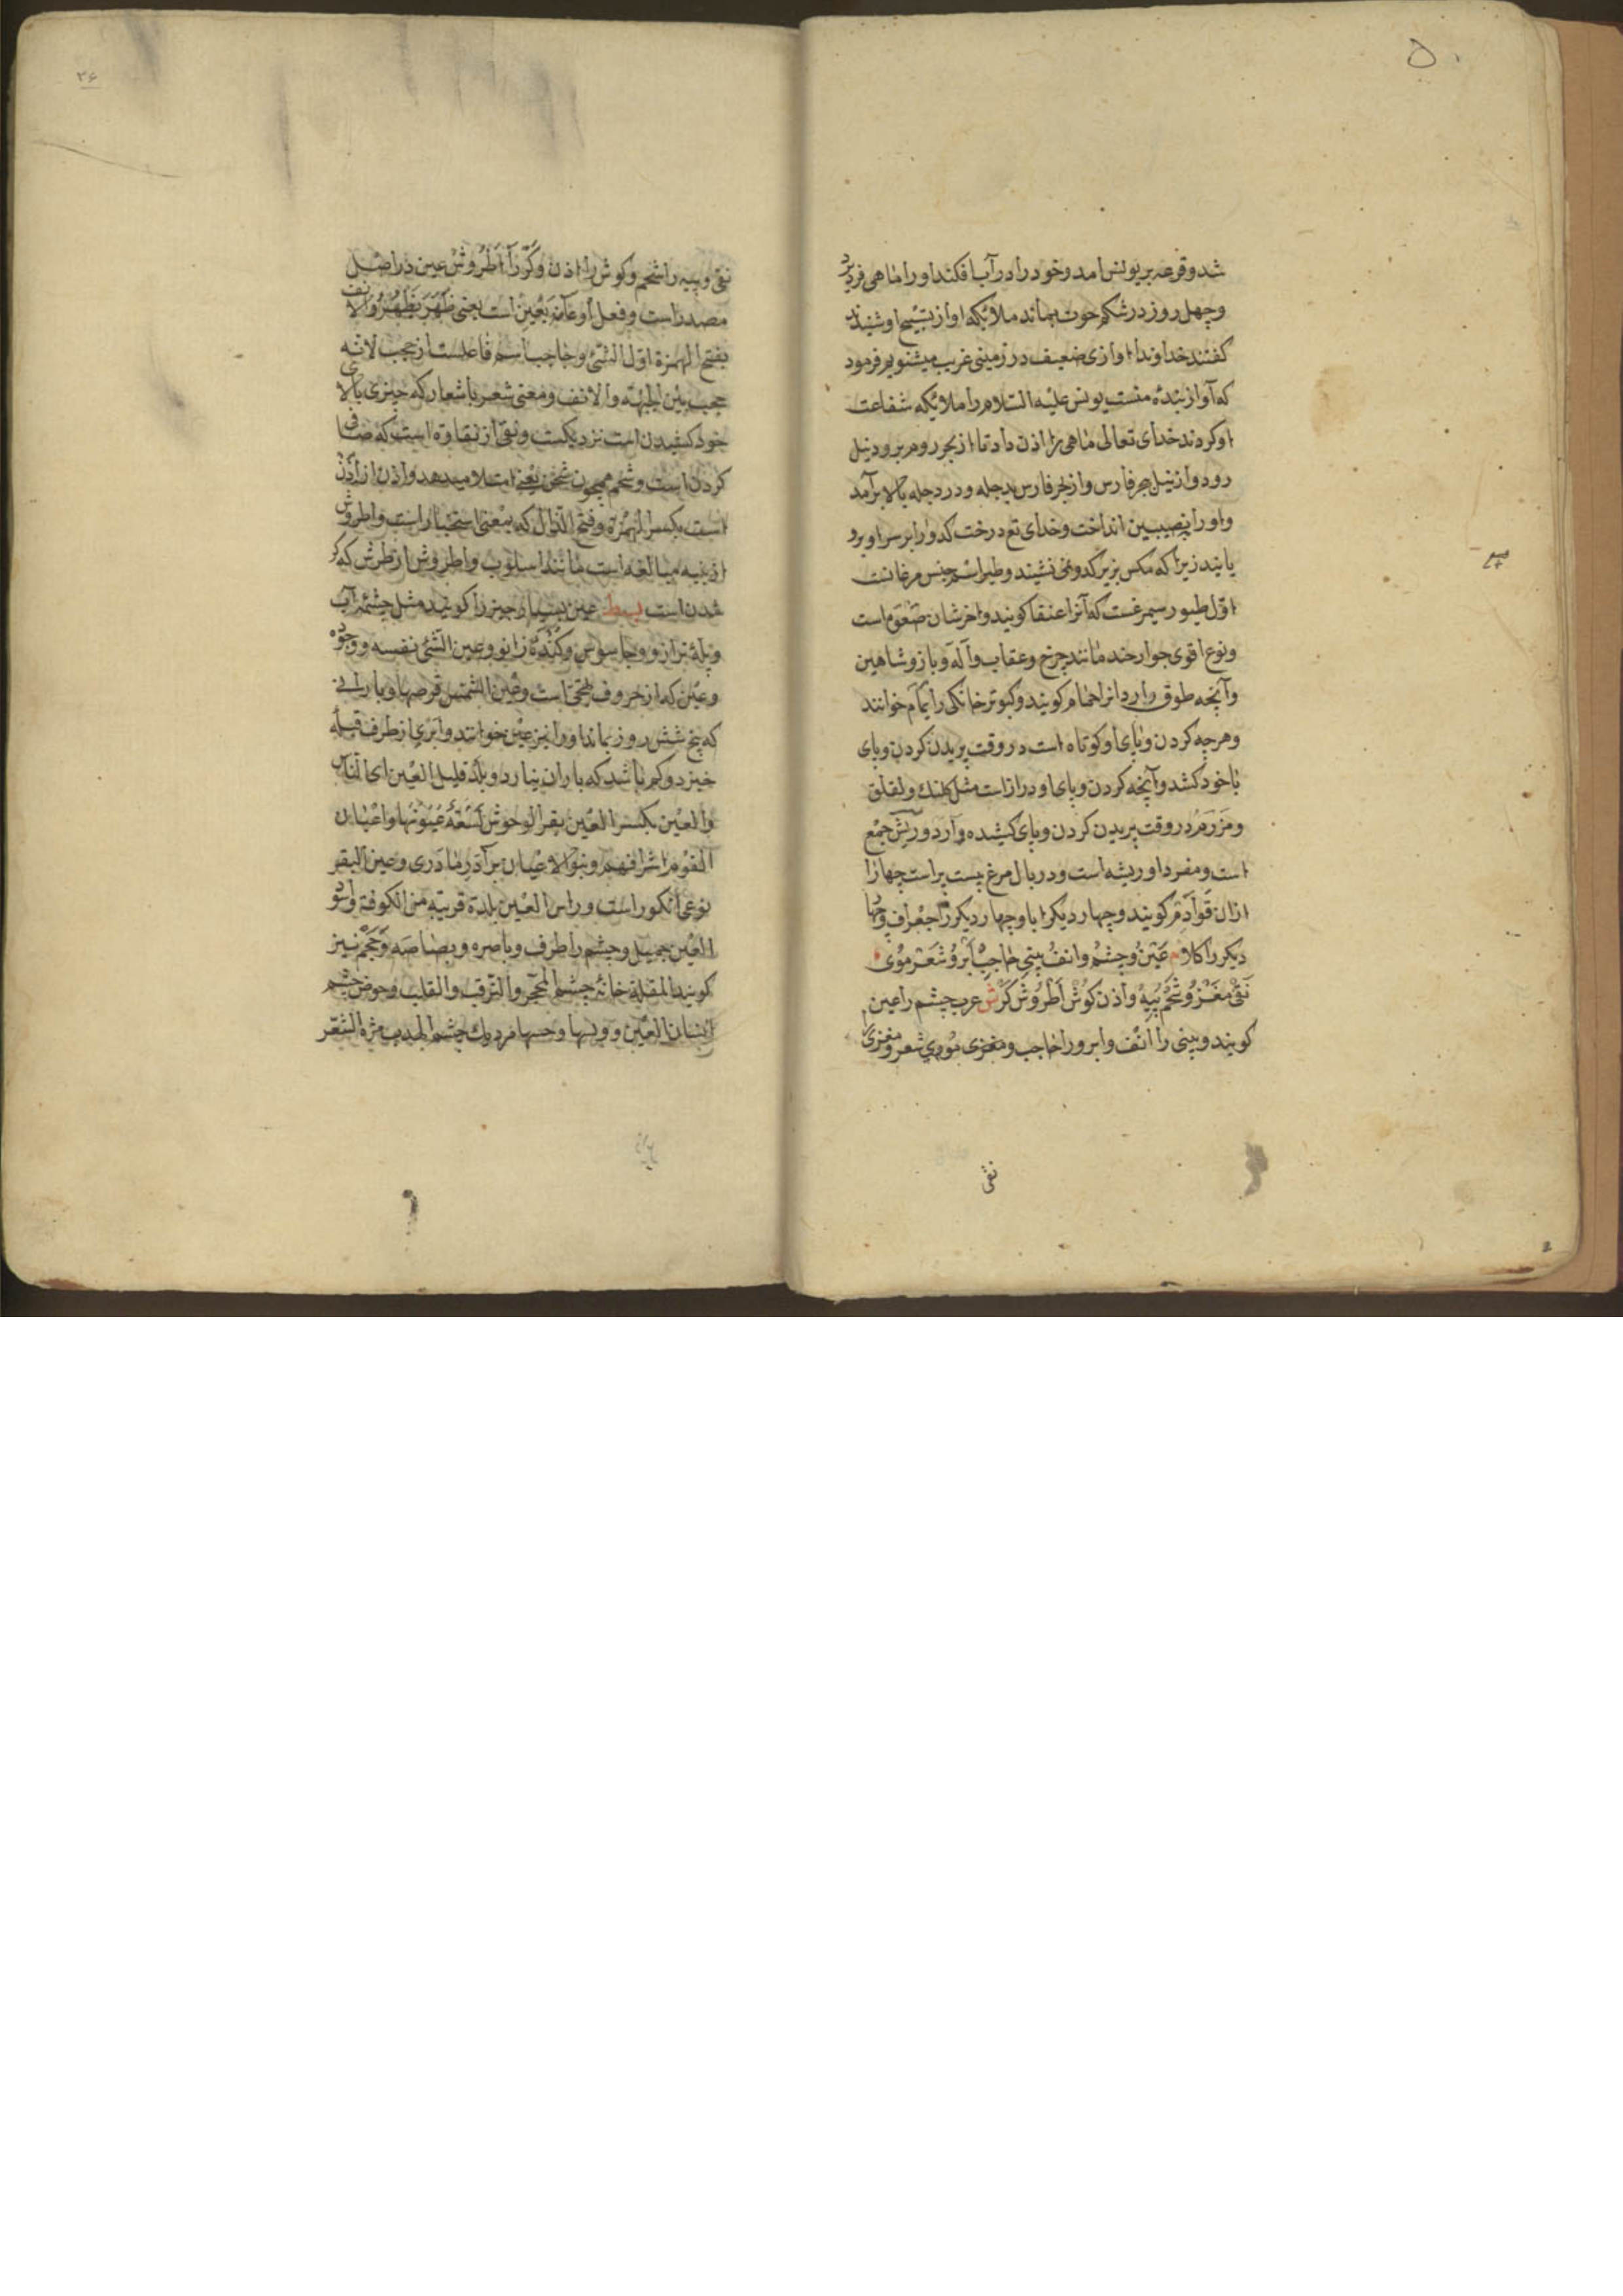 ۵۰
شد و قرعه بر یونس امد و خود را در آب افکند او را ماهی فرو برد
و چهل روز در شکم حوت بماند ملائکه اواز تسبیح او شنیدند
کفتند خداوندا اوازی ضعیف در زمینی غریب میشنویم فرمود
که آواز بندهٔ منست یونس علیه السلام را ملائکه شفاعت
او کردند خدای تعالی ماهی را اذن داد تا از بحر روم برود نیل
رود و از نیل بحر فارس و از بحر فارس بدجله و در دجله بالا برآمد
و او را بنصیبین انداخت و خدای تع درخت کدو را بر سر او برو
یانید زیرا که مکس بزیر کدو نمی نشیند و طیر اسم جنس مرغانست
اوّل طیور سیمرغست که آنرا عنقا کویند و اخرشان صعوه است
و نوع اقوی جوارحند مانند چرخ و عقاب و آله و باز و شاهین
و آنچه طوق دارد انرا حمام کویند و کبوتر خانکی را یمام خوانند
و هرچه کردن و پای او کوتاه است در وقت پریدن کردن و پای
با خود کشد و آنچه کردن و پای او دراز است مثل کلنک و لقلق
در وقت پریدن کردن و پای کشیده دارد و ریش جمع
است و مفرد او ریشه است و در بال مرغ بیست پر است چهار را
ازان قوادم کویند و چهار دیکر اباو چهار دیکر را و چهار
دیکر را کلا عَیْنُ و چشم و انف بینی حاجِبْ اَبْرُو شَعَرْ مُوی
نَقْیْ مَغْز و شَحْم پیه و اذن کُوشْ اُطْرُوشْ کَرْ ش عرب چشم را عین
کویند و بینی را انف و ابرو را حاجب و موی شعر و مغز را
نقی
۲۶
نقی و پیه را شحم و کوش را اذن و کر را اُطروش عین در اصل
مصدر است و فعل او عان یعین است یعنی ظهر یظهر و الانف
بفتح الهمزة اوّل الشّئ و حاجب اسم فاعلست از حجب لانه
حجب بین الجبهة والانف و معنی شعر با شعار که چیزی بالای
خود کشیدن است نزدیکست و نقی از نقاوة است که صافی
کردن است و شحم همچون شحن یعنی امتلا میدهد و اذن از اِذَن
است بکسر الهمزة و فتح الذّال که بمعنی استخبار است و اطروش
ازینیه مبالغه است مانند اسلوب و اطروش از طرش که کر
شدن است بسط عین بسیار چیز را کویند مثل چشمهٔ آب
و پلهٔ ترازو و جاسوس و کندهٔ زانو و عین الشئ نفسه و وجوه
و عین که از حروف تهجّی است و عین الشمس قرصها و بارانی
که پنج شش روز بماند او را نیز عین خوانند و ابری از طرف قبله
خیزد و کم باشد که باران نبارد و بلد قلیل العین ای النّاس
والعین بکسر العین بقر الوحوش لسعة عیونها و اعیان
القوم اشرافهم و بنو الاعیان برادر مادری و عین البقر
نوعی انکور است و راس العین بلدة قریبة من الکوفة و اسود
العین جبیل و چشم را طرف و باصره و بصاصه و حجم نیز
کویند المقلة خانهٔ چشم المحجر والترقب والقلب و حوض چشم
انسان العین و مردمک چشم الهدب مژه الشعر